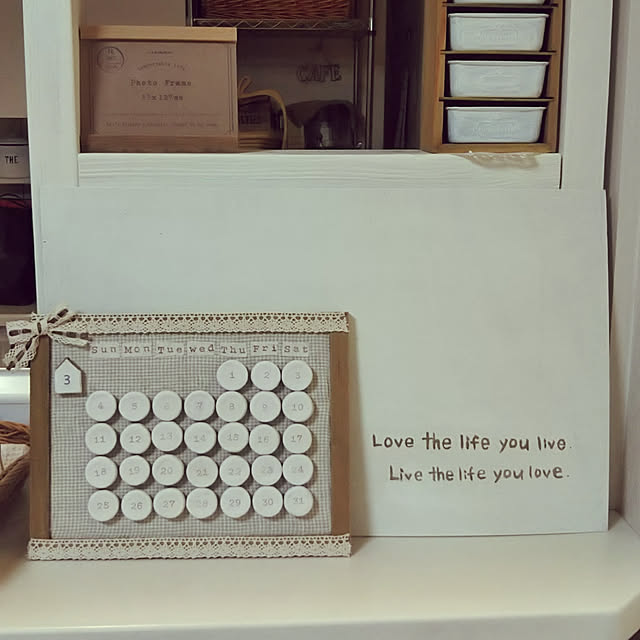 Photo Frame
CAFE
THE
Sun Mon Tue wed Thu Fri Sat
3
1 2 3
4 5 6 7 8 9 10
11 12 13 14 15 16 17
18 19 20 21 22 23 24
25 26 27 28 29 30 31
Love the life you live.
Live the life you love.